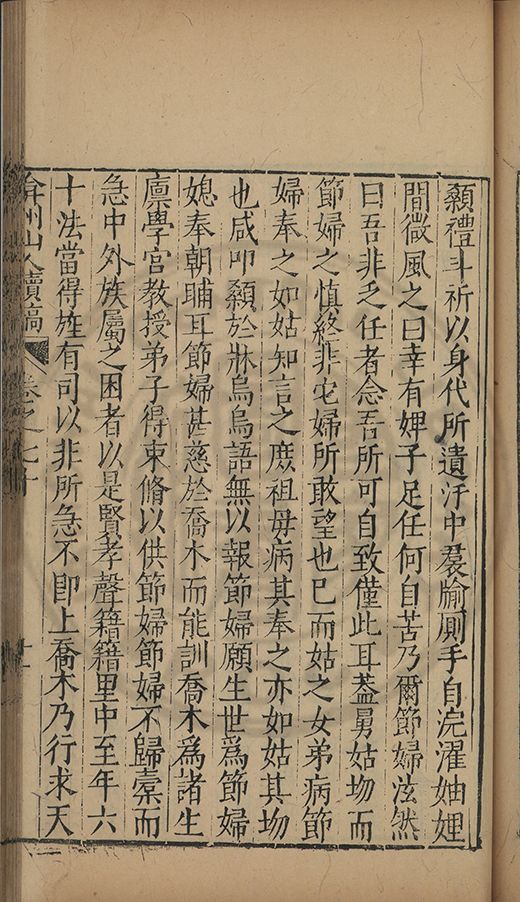 顙禮斗祈以身代所遺汙中裠牏厠手自浣濯妯娌
間微風之曰幸有婢子足任何自苦乃爾節婦泫然
曰吾非乏任者念吾所可自致僅此耳葢舅姑歾而
節婦之慎終非它婦所敢望也巳而姑之女弟病節
婦奉之如姑知言之庶祖母病其奉之亦如姑其歾
也咸叩顙於牀烏烏語無以報節婦願生世爲節婦
媳奉朝晡耳節婦甚慈於喬木而能訓喬木爲諸生
廪學官教授弟子得束脩以供節婦節婦不歸槖而
急中外族屬之困者以是賢孝聲籍籍里中至年六
十法當得旌有司以非所急不卽上喬木乃行求天
弇州山人續稿 卷之七十 十一